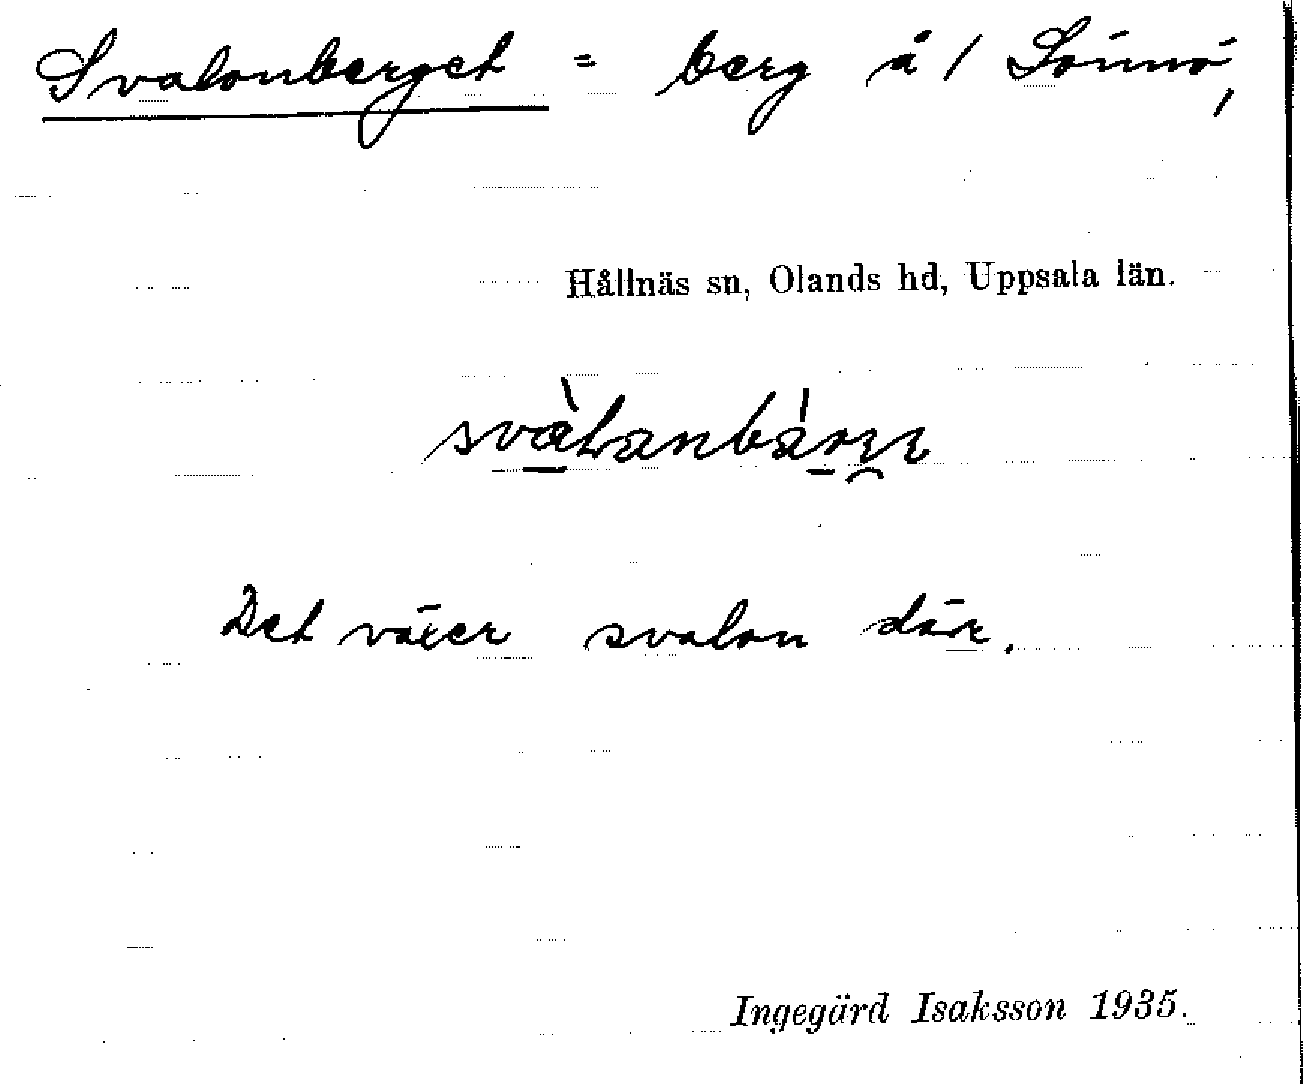 Svalonberget = berg å/ Sönnö,
Hållnäs sn, Olands hd, Uppsala län.
Det växer svalon där.
Ingegärd Isaksson 1935.